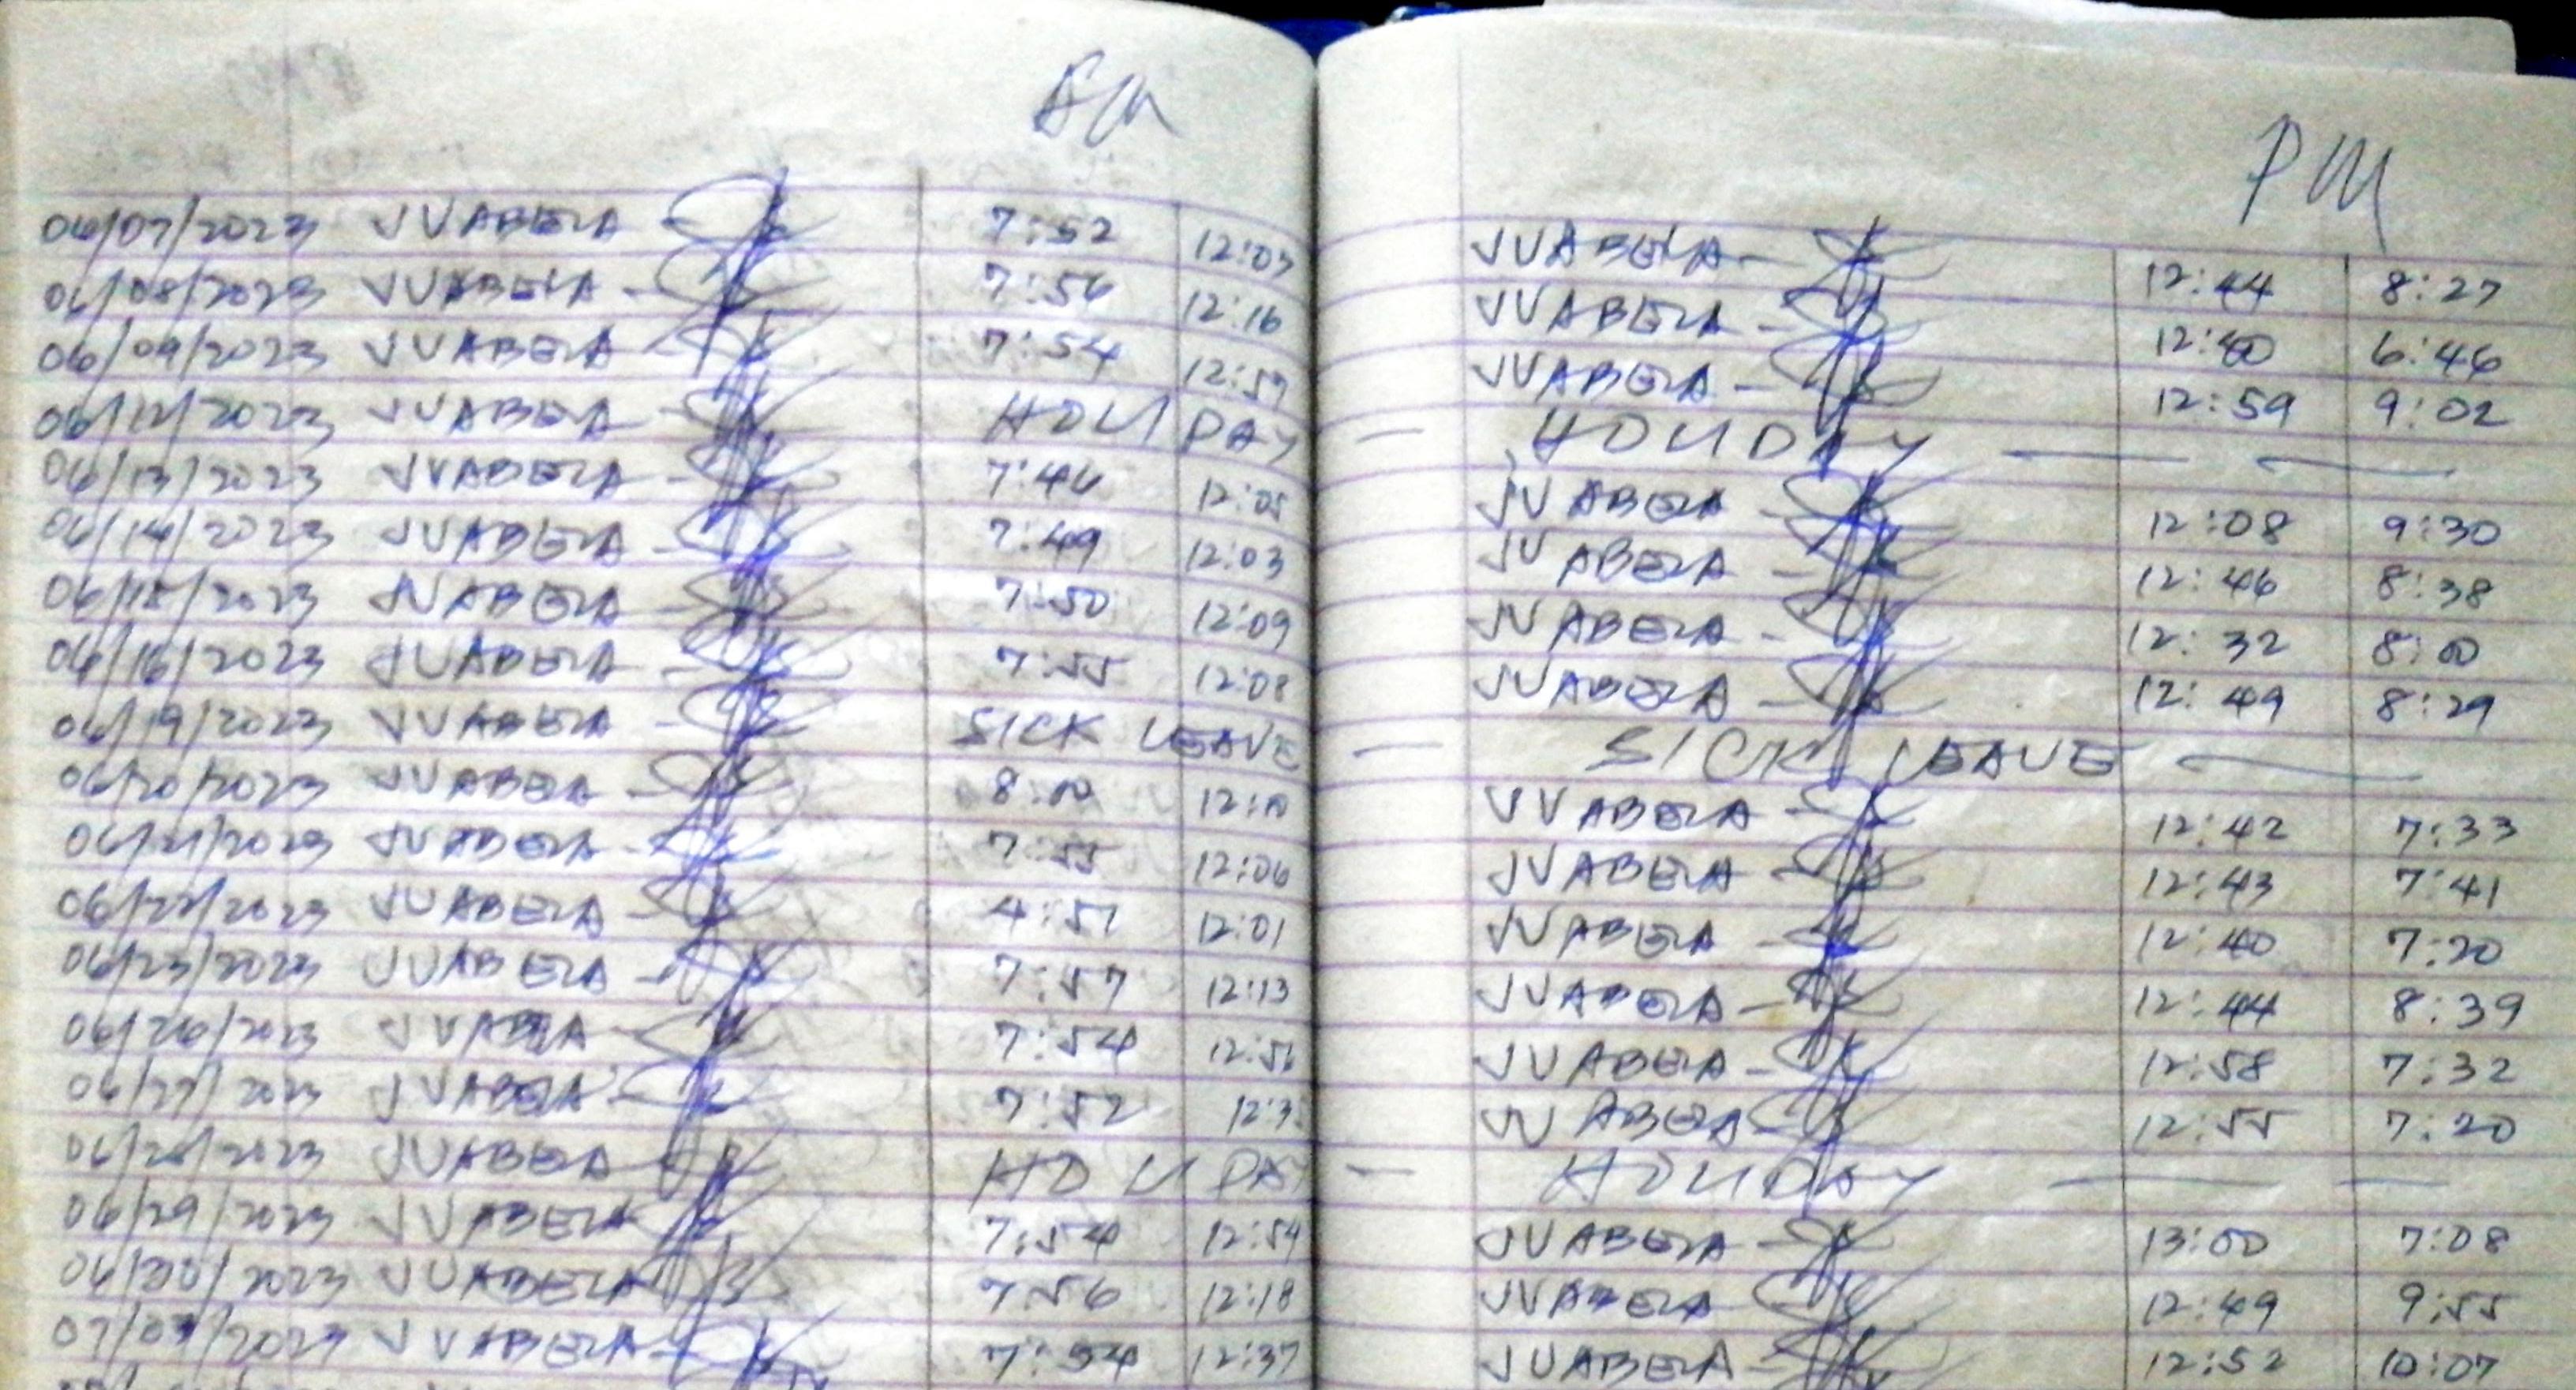 AM
06/07/2023 JVABELA 7:52 12:03
06/08/2023 JVABELA 7:56 12:16
06/09/2023 JVABELA 7:54 12:59
06/12/2023 JVABELA HOLIDAY
06/13/2023 JVABELA 7:46 12:05
06/14/2023 JVABELA 7:49 12:03
06/15/2023 JVABELA 7:50 12:09
06/16/2023 JVABELA 7:55 12:08
06/19/2023 JVABELA SICK LEAVE
06/20/2023 JVABELA 8:00 12:10
06/21/2023 JVABELA 7:55 12:06
06/22/2023 JVABELA 4:57 12:01
06/23/2023 JVABELA 7:57 12:13
06/26/2023 JVABELA 7:54
06/27/2023 JVABELA 7:52
06/28/2023 JVABELA HOLIDAY
06/29/2023 JVABELA 7:54 12:54
06/30/2023 JVABELA 7:56 12:18
07/03/2023 JVABELA 7:54 12:37
PM
JVABELA 12:44 8:27
JVABELA 12:40 6:46
JVABELA 12:59 9:02
— HOLIDAY — —
JVABELA 12:08 9:30
JVABELA 12:46 8:38
JVABELA 12:32 8:00
JVABELA 12:49 8:29
— SICK LEAVE —
JVABELA 12:42 7:33
JVABELA 12:43 7:41
JVABELA 12:40 7:20
JVABELA 12:44 8:39
JVABELA 12:58 7:32
JVABELA 12:55 7:20
— HOLIDAY — —
JVABELA 13:00 7:08
JVABELA 12:49 9:55
JVABELA 12:52 10:07